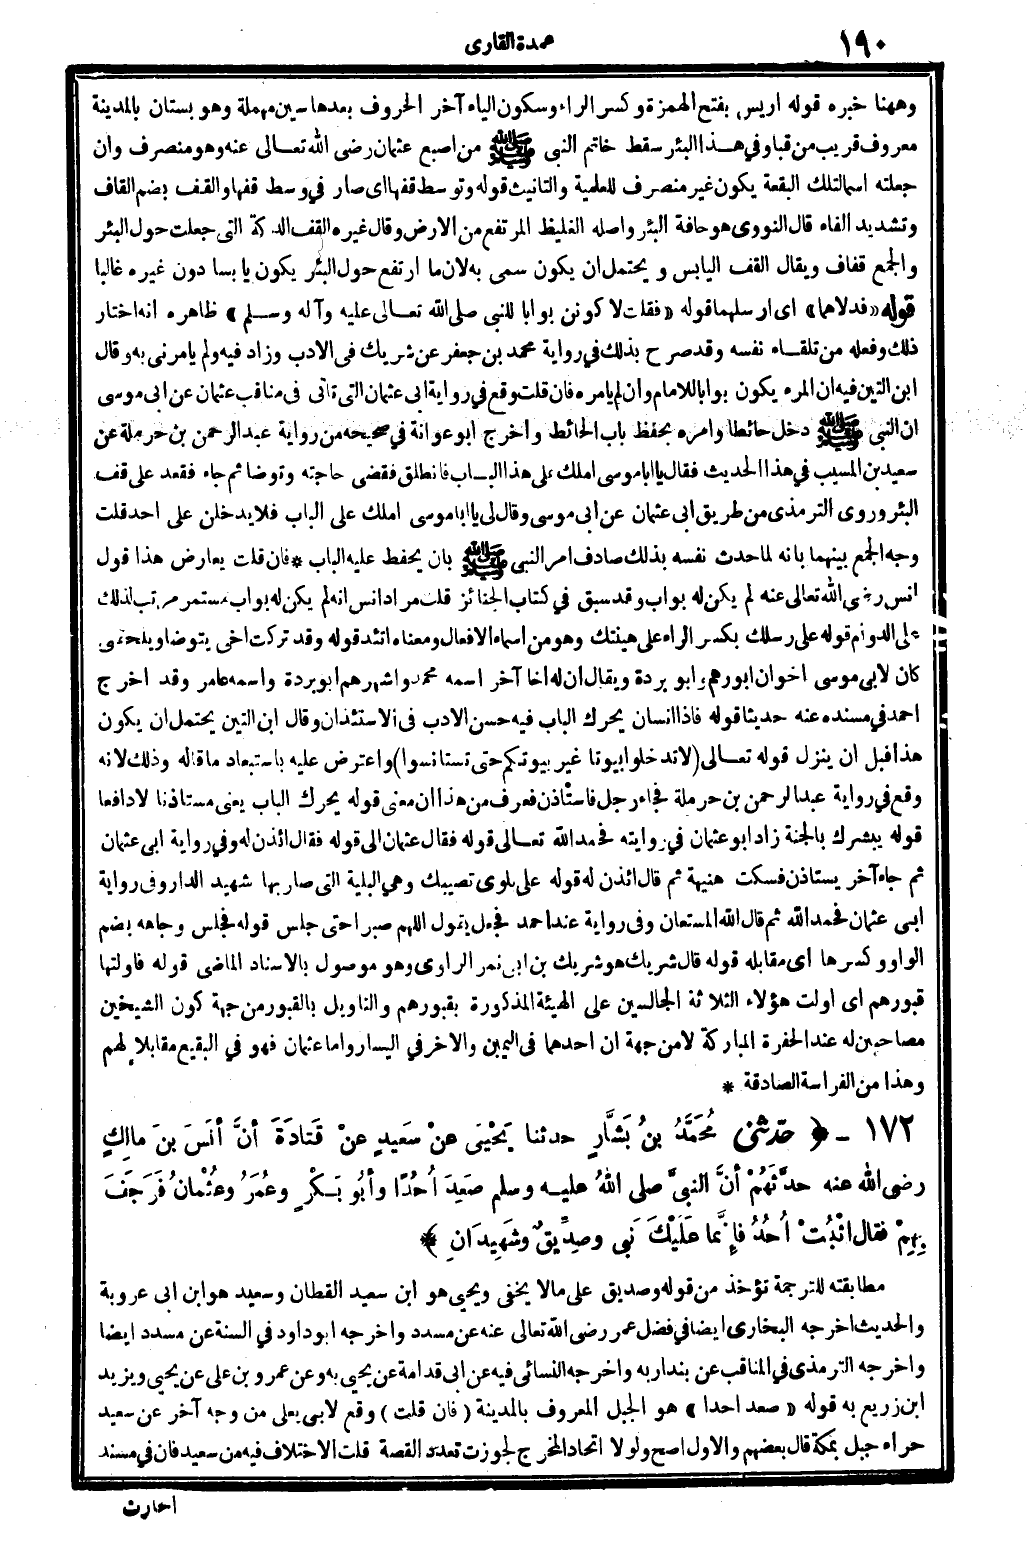 ١٩٠
عمدة القارى
وههنا خبره قوله اريس بفتح الهمزة وكسر الراء وسكون الياء آخر الحروف بعدها سين مهملة وهو بستان بالمدينة
معروف قريب من قبا وفي هذا البئر سقط خاتم النبي ﷺ من اصبع عثمان رضى الله تعالى عنه وهو منصرف وان
جعلته اسما لتلك البقعة يكون غير منصرف للعلمية والتانيث قوله وتوسط قفها اى صار في وسط قفها والقف بضم القاف
وتشديد الفاء قال النووى هو حافة البئر واصله الغليظ المرتفع من الارض وقال غيره القف الدكة التى جعلت حول البئر
والجمع قفاف ويقال القف اليابس ويحتمل ان يكون سمى به لان ما ارتفع حول البئر يكون يابسا دون غيره غالبا
قوله «فدلاهما» اى ارسلهما قوله «فقلت لاكونن بوابا للنبى صلى الله تعالى عليه وآله وسلم» ظاهره انه اختار
ذلك وفعله من تلقاء نفسه وقد صرح بذلك في رواية محمد بن جعفر عن شريك فى الادب وزاد فيه ولم يامرنى به وقال
ابن التين فيه ان المرء يكون بوابا للامام وان لم يامره فان قلت وقع في رواية ابى عثمان التى تاتى فى مناقب عثمان عن ابى موسى
ان النبى ﷺ دخل حائطا وامره بحفظ باب الحائط واخرج ابو عوانة في صحيحه من رواية عبد الرحمن بن حرملة عن
سعيد بن المسيب في هذا الحديث فقال يا ابا موسى املك على هذا الباب فانطلق فقضى حاجته وتوضا ثم جاء فقعد على قف
البئر وروى الترمذى من طريق ابى عثمان عن ابى موسى وقال لى يا ابا موسى املك على الباب فلا يدخلن على احد قلت
وجه الجمع بينهما بانه لما حدث نفسه بذلك صادف امر النبى ﷺ بان يحفظ عليه الباب * فان قلت يعارض هذا قول
انس رضى الله تعالى عنه لم يكن له بواب وقد سبق في كتاب الجنائز قلت مراد انس انه لم يكن له بواب مستمر مرتب لذلك
على الدوام قوله على رسلك بكسر الراء على هينتك وهو من اسماء الافعال ومعناه اتئد قوله وقد تركت اخى يتوضا ويلحقنى
كان لابى موسى اخوان ابورهم وابو بردة ويقال ان له اخا آخر اسمه محمد واشهرهم ابو بردة واسمه عامر وقد اخرج
احمد في مسنده عنه حديثا قوله فاذا انسان يحرك الباب فيه حسن الادب فى الاستئذان وقال ابن التين يحتمل ان يكون
هذا قبل ان ينزل قوله تعالى (لا تدخلوا بيوتا غير بيوتكم حتى تستانسوا) واعترض عليه باستبعاد ما قاله وذلك لانه
وقع في رواية عبد الرحمن بن حرملة فجاء رجل فاستأذن فعرف من هذا ان معنى قوله يحرك الباب يعنى مستاذنا لا دافعا
قوله يبشرك بالجنة زاد ابو عثمان في روايته فحمد الله تعالى قوله فقال عثمان الى قوله فقال ائذن له وفي رواية ابى عثمان
ثم جاء آخر يستاذن فسكت هنيهة ثم قال ائذن له قوله على بلوى تصيبك وهي البلية التى صار بها شهيد الدار وفى رواية
ابى عثمان فحمد الله ثم قال الله المستعان وفى رواية عند احمد فجعل يقول اللهم صبرا حتى جلس قوله فجلس وجاهه بضم
الواو وكسرها اى مقابله قوله قال شريك هو شريك بن ابى نمر الراوى وهو موصول بالاسناد الماضى قوله فاولتها
قبورهم اى اولت هؤلاء الثلاثة الجالسين على الهيئة المذكورة بقبورهم والتاويل بالقبور من جهة كون الشيخين
مصاحبين له عند الحفرة المباركة لا من جهة ان احدهما فى اليمين والآخر في اليسار واما عثمان فهو في البقيع مقابلا لهم
وهذا من الفراسة الصادقة *
١٧٢ - ﴿ حَدَّثَنِى مُحَمَّدُ بنُ بَشَّارٍ حدثنا يَحْيَى عنْ سَعِيدٍ عنْ قَتَادَةَ أنَّ أنَسَ بنَ مالِكٍ
رضى الله عنه حدَّثَهُمْ أنَّ النبىَّ صلى اللهُ عليه وسلم صَعِدَ اُحُدًا وأبُو بَكْرٍ وعُمَرُ وعُثْمانُ فَرَجَفَ
بِهِمْ فقال اثْبُتْ اُحُدُ فإنَّما عَلَيْكَ نَبى وصِدِّيقٌ وشَهِيدَانِ ﴾
مطابقته للترجمة تؤخذ من قوله وصديق على ما لا يخفى ويحيى هو ابن سعيد القطان وسعيد هو ابن ابى عروبة
والحديث اخرجه البخارى ايضا في فضل عمر رضى الله تعالى عنه عن مسدد واخرجه ابو داود في السنة عن مسدد ايضا
واخرجه الترمذى في المناقب عن بندار به واخرجه النسائى فيه عن ابى قدامة عن يحيى به وعن عمرو بن على عن يحيى ويزيد
ابن زريع به قوله «صعد احدا» هو الجبل المعروف بالمدينة (فان قلت) وقع لابى يعلى من وجه آخر عن سعيد
حراء جبل بمكة قال بعضهم والاول اصح ولولا اتحاد المخرج لجوزت تعدد القصة قلت الاختلاف فيه من سعيد فان في مسند
احارث